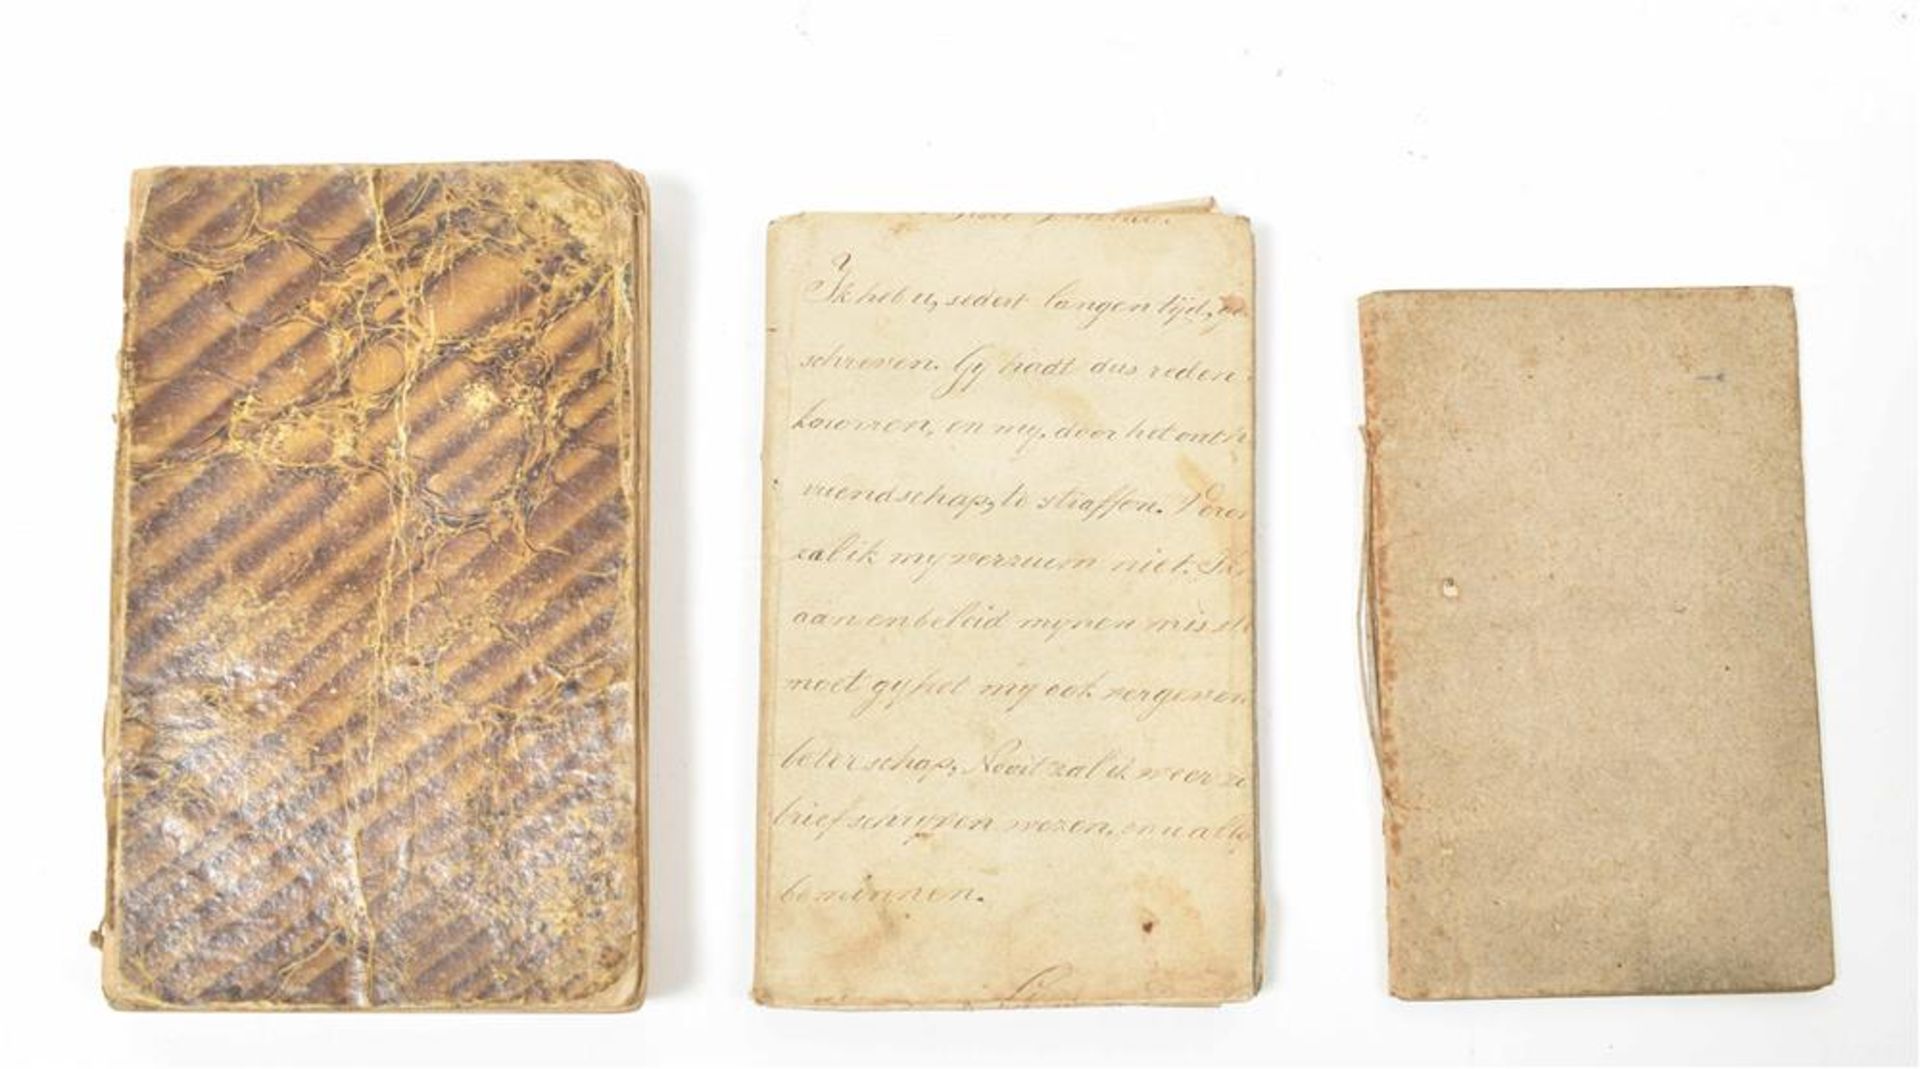 Ik heb u, sedert langen tijd, ge-
schreven. Gy hadt dus reden
komen, en my, door het onth
vriendschap, te straffen. Veron
zal ik my verzuim niet. Ik
aan en beleid mynen misst
moet gy het my ook vergeven
beterschap, Nooit zal ik weer zo
brief schryven wezen, en u altij
beminnen.